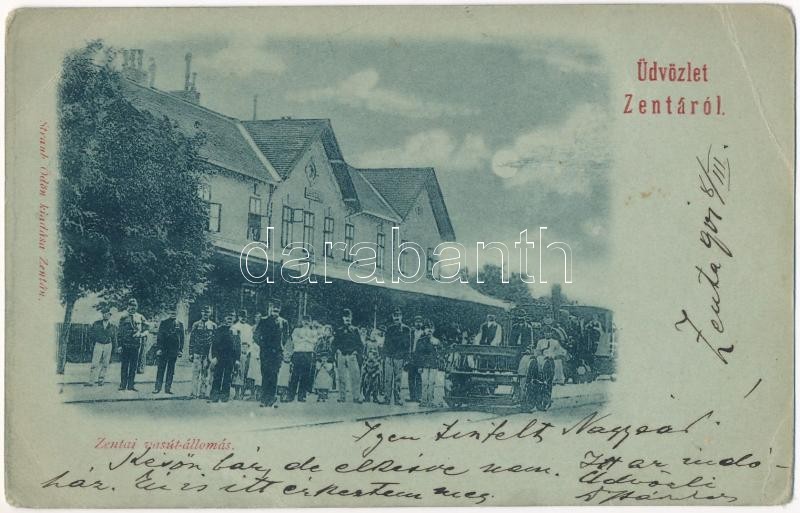 Üdvözlet
Zentáról.
Zenta 901 8/III.
Straub Ödön kiadása Zentán.
darabanth
Zentai vasút-állomás.
Igen tisztelt Nagysád!
Későn bár, de elkésve nem. Itt az indó-
ház. Én is itt érkeztem meg. Üdvözli